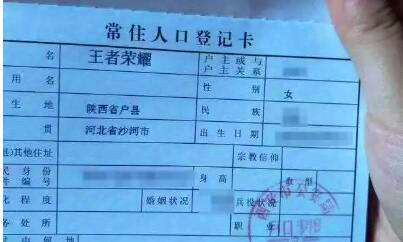 常住人口登记卡
名 王者荣耀 户主或与户主关系
用名 性别 女
生地 陕西省户县 民族
贯 河北省沙河市 出生日期
其他住址 宗教信仰
民身份件编号 身高 血型
化程度 婚姻状况 兵役状况
务处所 职业